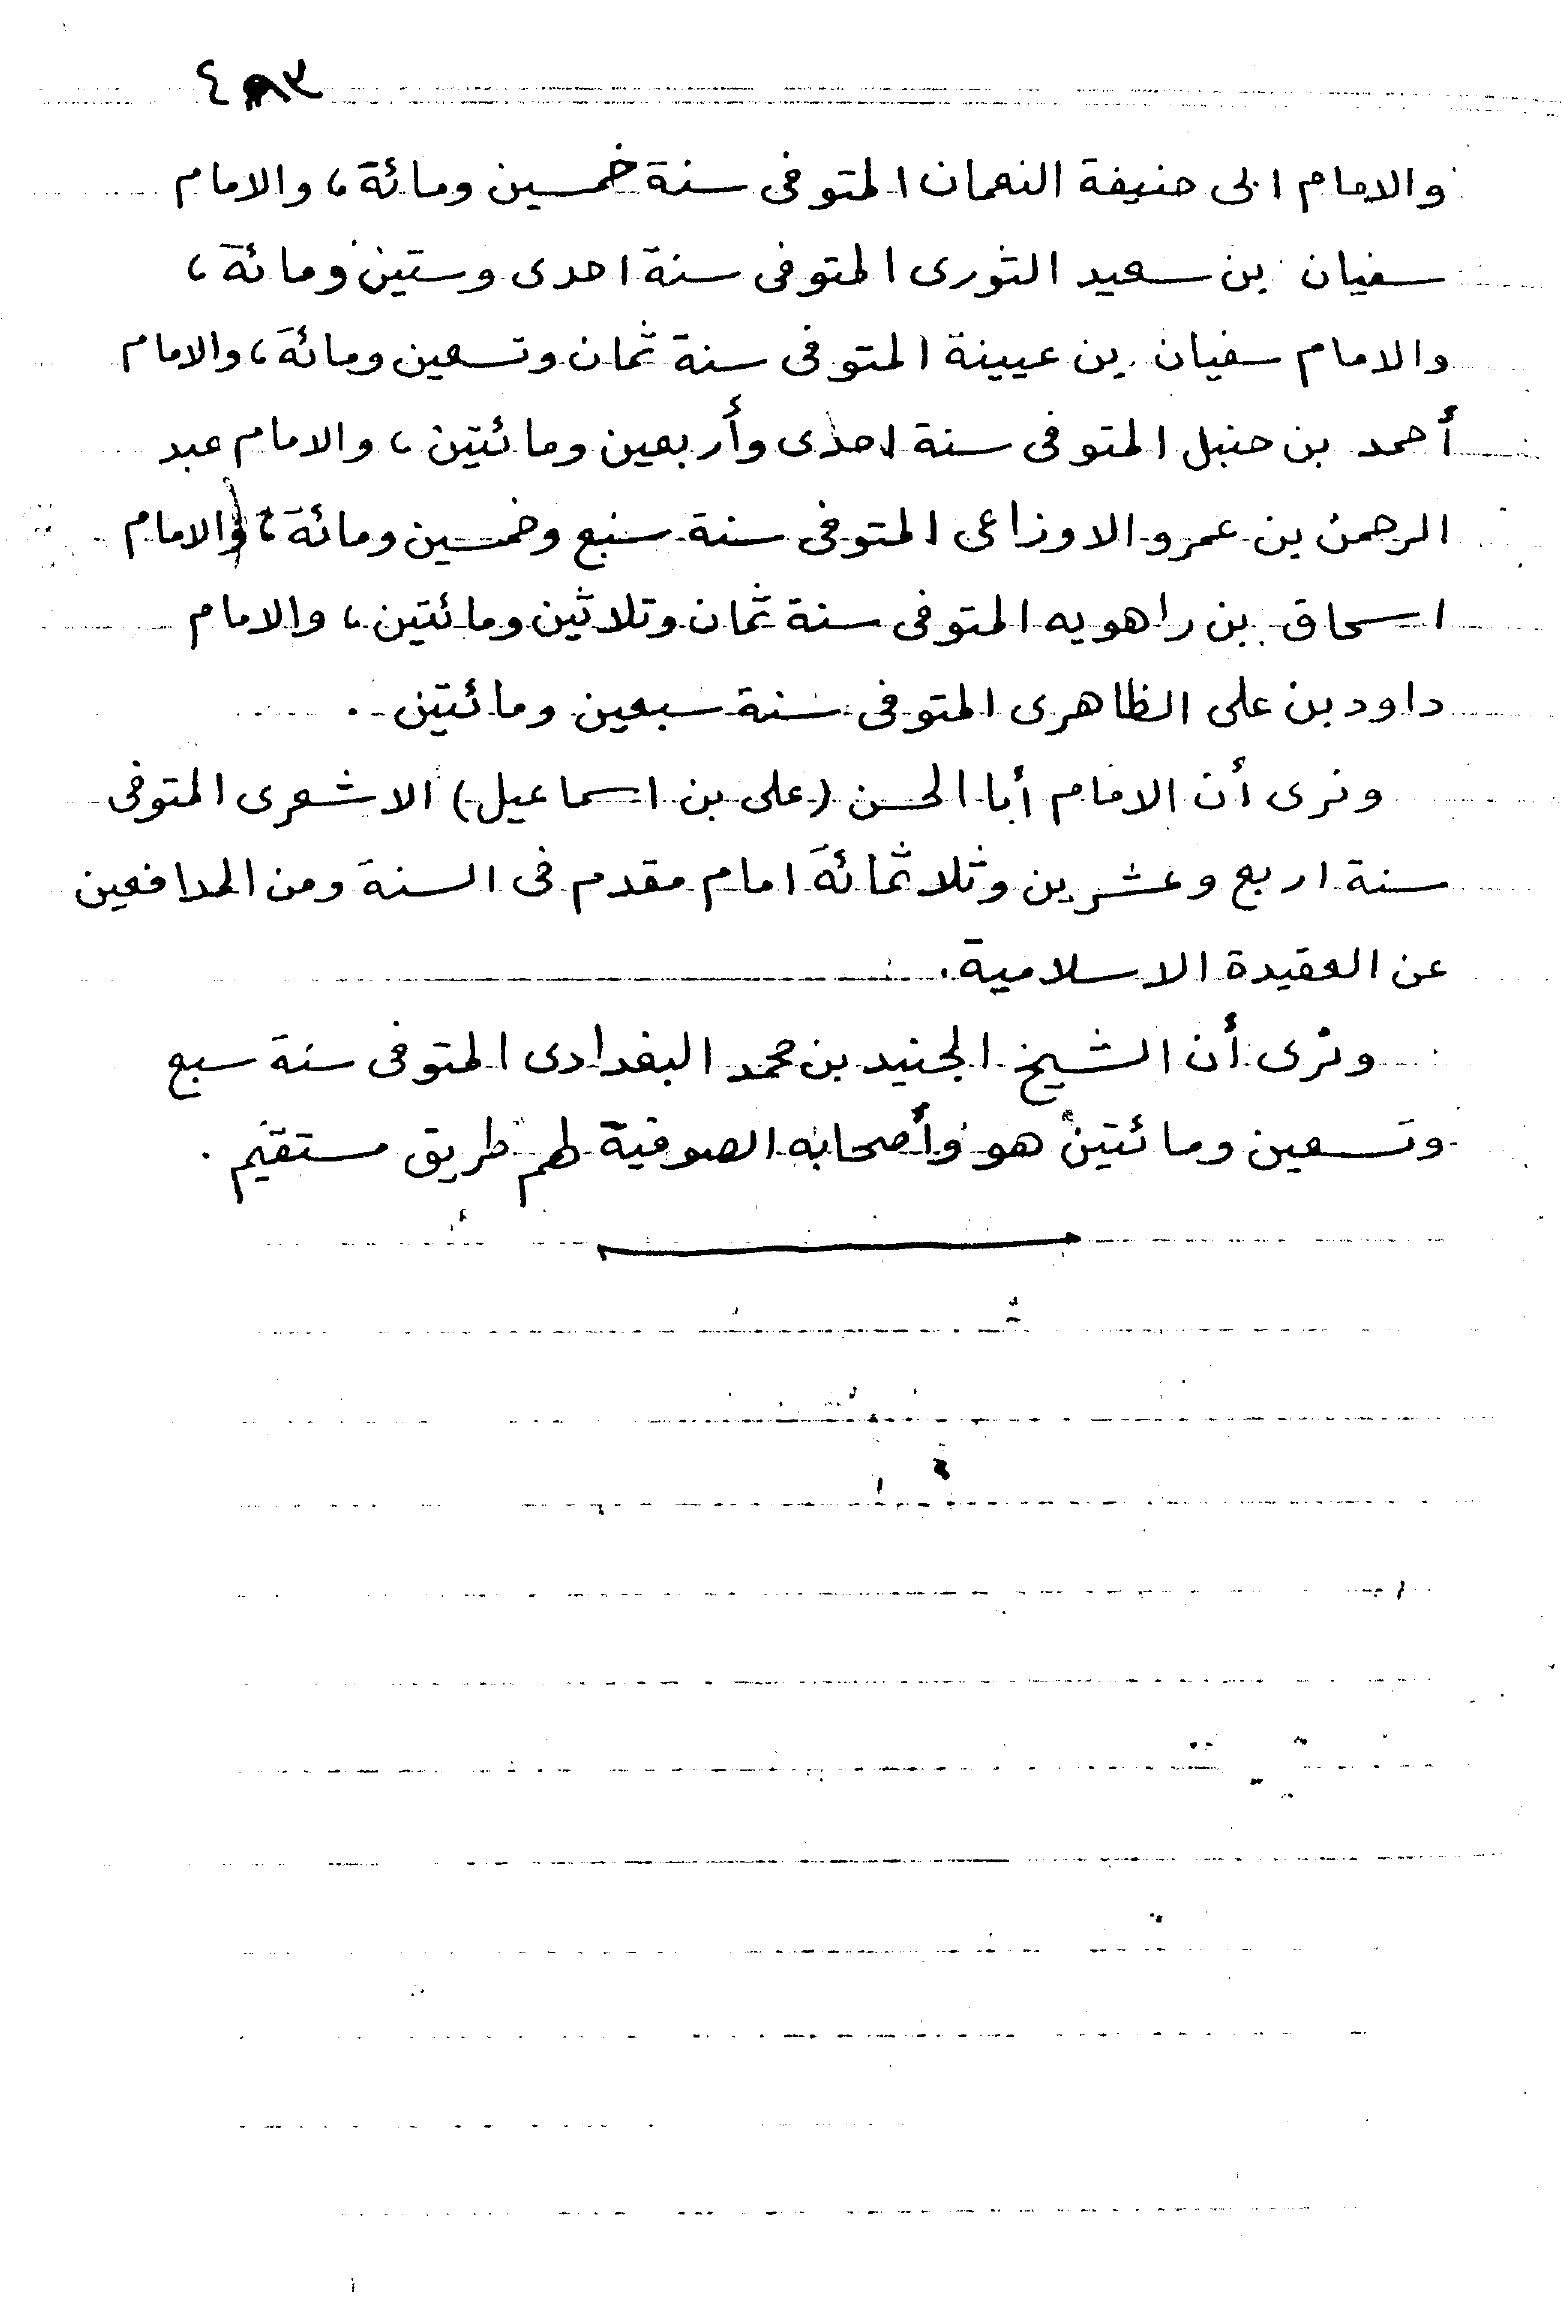 والامام ابى حنيفة النعمان المتوفى سنة خمسين ومائة، والامام
سفيان بن سعيد الثورى المتوفى سنة احدى وستين ومائة،
والامام سفيان بن عيينة المتوفى سنة ثمان وتسعين ومائة، والامام
أحمد بن حنبل المتوفى سنة احدى وأربعين ومائتين، والامام عبد
الرحمن بن عمرو الاوزاعى المتوفى سنة سبع وخمسين ومائة، والامام
اسحاق بن راهويه المتوفى سنة ثمان وثلاثين ومائتين، والامام
داود بن على الظاهرى المتوفى سنة سبعين ومائتين.
ونرى أن الامام أبا الحسن (على بن اسماعيل) الاشعرى المتوفى
سنة اربع وعشرين وثلاثمائة امام مقدم فى السنة ومن المدافعين
عن العقيدة الاسلامية.
ونرى أن الشيخ الجنيد بن محمد البغدادى المتوفى سنة سبع
وتسعين ومائتين هو وأصحابه الصوفية لهم طريق مستقيم.